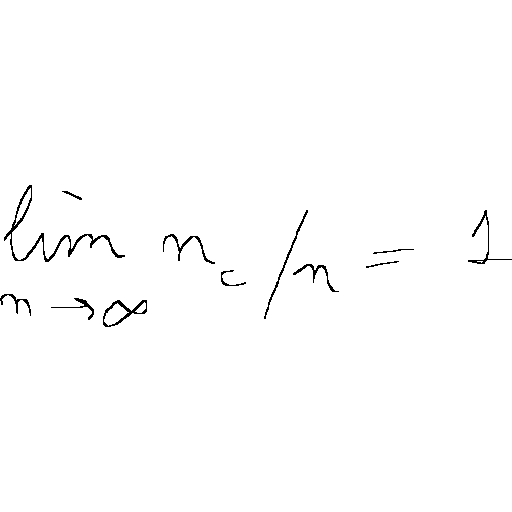 \lim_{n \to \infty} n_c / n = 1